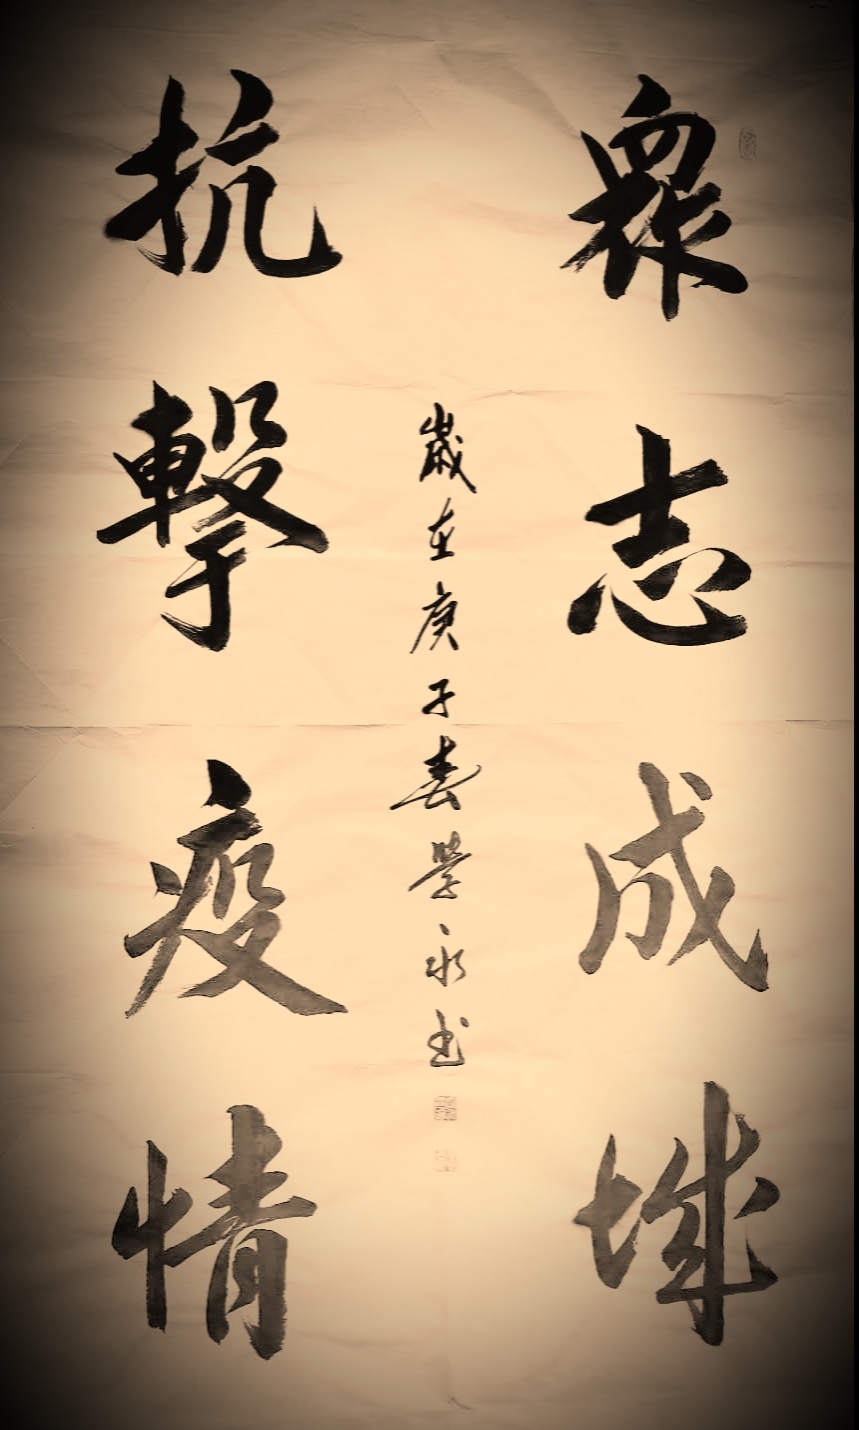 衆志成城
抗擊疫情
歲在庚子春學永书